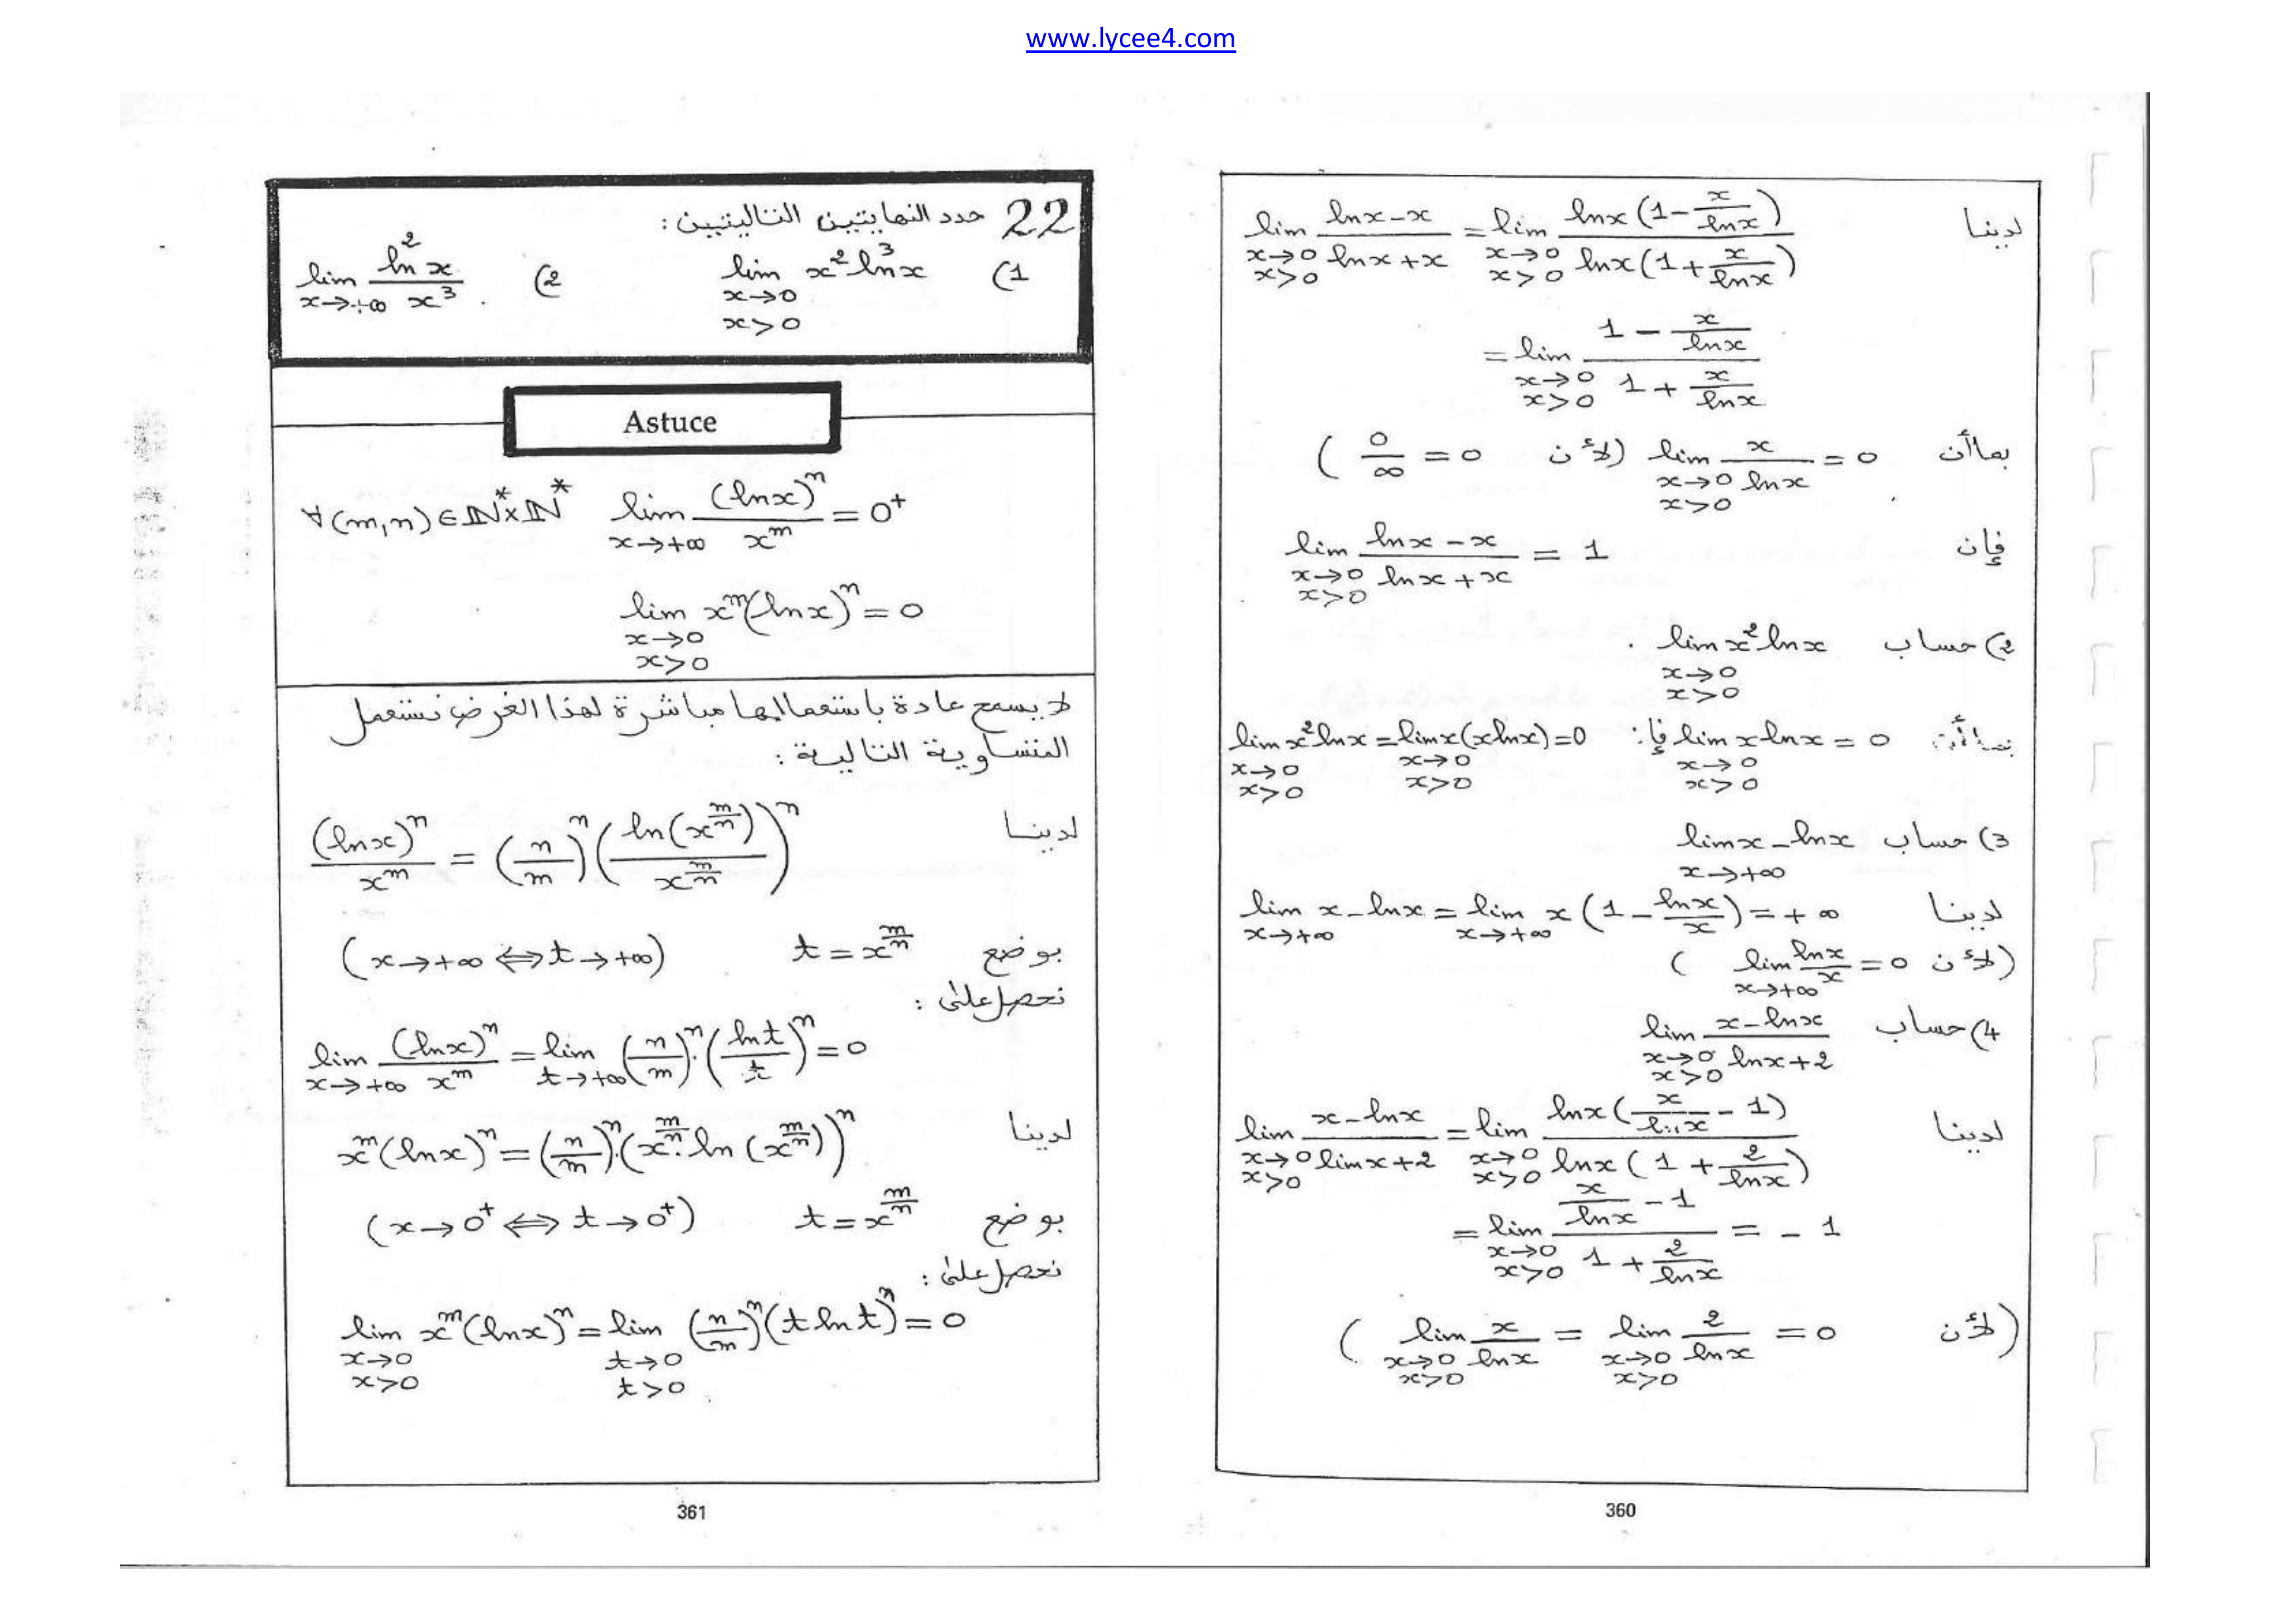 www.lycee4.com
لدينا lim_{x→0, x>0} (lnx - x)/(lnx + x) = lim_{x→0, x>0} lnx(1 - x/lnx) / lnx(1 + x/lnx)
= lim_{x→0, x>0} (1 - x/lnx) / (1 + x/lnx)
بما أن lim_{x→0, x>0} x/lnx = 0 (لأن 0/∞ = 0)
فإن lim_{x→0, x>0} (lnx - x)/(lnx + x) = 1
2) حساب lim_{x→0, x>0} x² lnx .
بما أن lim_{x→0, x>0} x lnx = 0 فإن: lim_{x→0, x>0} x² lnx = lim_{x→0, x>0} x(x lnx) = 0
3) حساب lim_{x→+∞} x - lnx
لدينا lim_{x→+∞} x - lnx = lim_{x→+∞} x(1 - lnx/x) = +∞
(لأن lim_{x→+∞} lnx/x = 0)
4) حساب lim_{x→0, x>0} (x - lnx)/(lnx + 2)
لدينا lim_{x→0, x>0} (x - lnx)/(limx + 2) = lim_{x→0, x>0} lnx(x/lnx - 1) / lnx(1 + 2/lnx)
= lim_{x→0, x>0} (x/lnx - 1) / (1 + 2/lnx) = -1
(لأن lim_{x→0, x>0} x/lnx = lim_{x→0, x>0} 2/lnx = 0)
360
22 حدد النهايتين التاليتين:
1) lim_{x→0, x>0} x² ln³x 2) lim_{x→+∞} ln²x / x³ .
Astuce
∀(m,n) ∈ ℕ* × ℕ* lim_{x→+∞} (lnx)^n / x^m = 0⁺
lim_{x→0, x>0} x^m (lnx)^n = 0
لا يسمح عادة باستعمالها مباشرة لهذا الغرض نستعمل
المتساوية التالية :
لدينا (lnx)^n / x^m = (n/m)^n (ln(x^{m/n}) / x^{m/n})^n
بوضع t = x^{m/n} (x→+∞ ⟺ t→+∞)
نحصل على :
lim_{x→+∞} (lnx)^n / x^m = lim_{t→+∞} (n/m)^n . (lnt/t)^n = 0
لدينا x^m (lnx)^n = (n/m)^n . (x^{m/n} . ln(x^{m/n}))^n
بوضع t = x^{m/n} (x→0⁺ ⟺ t→0⁺)
نحصل على :
lim_{x→0, x>0} x^m (lnx)^n = lim_{t→0, t>0} (n/m)^n (t lnt)^n = 0
361